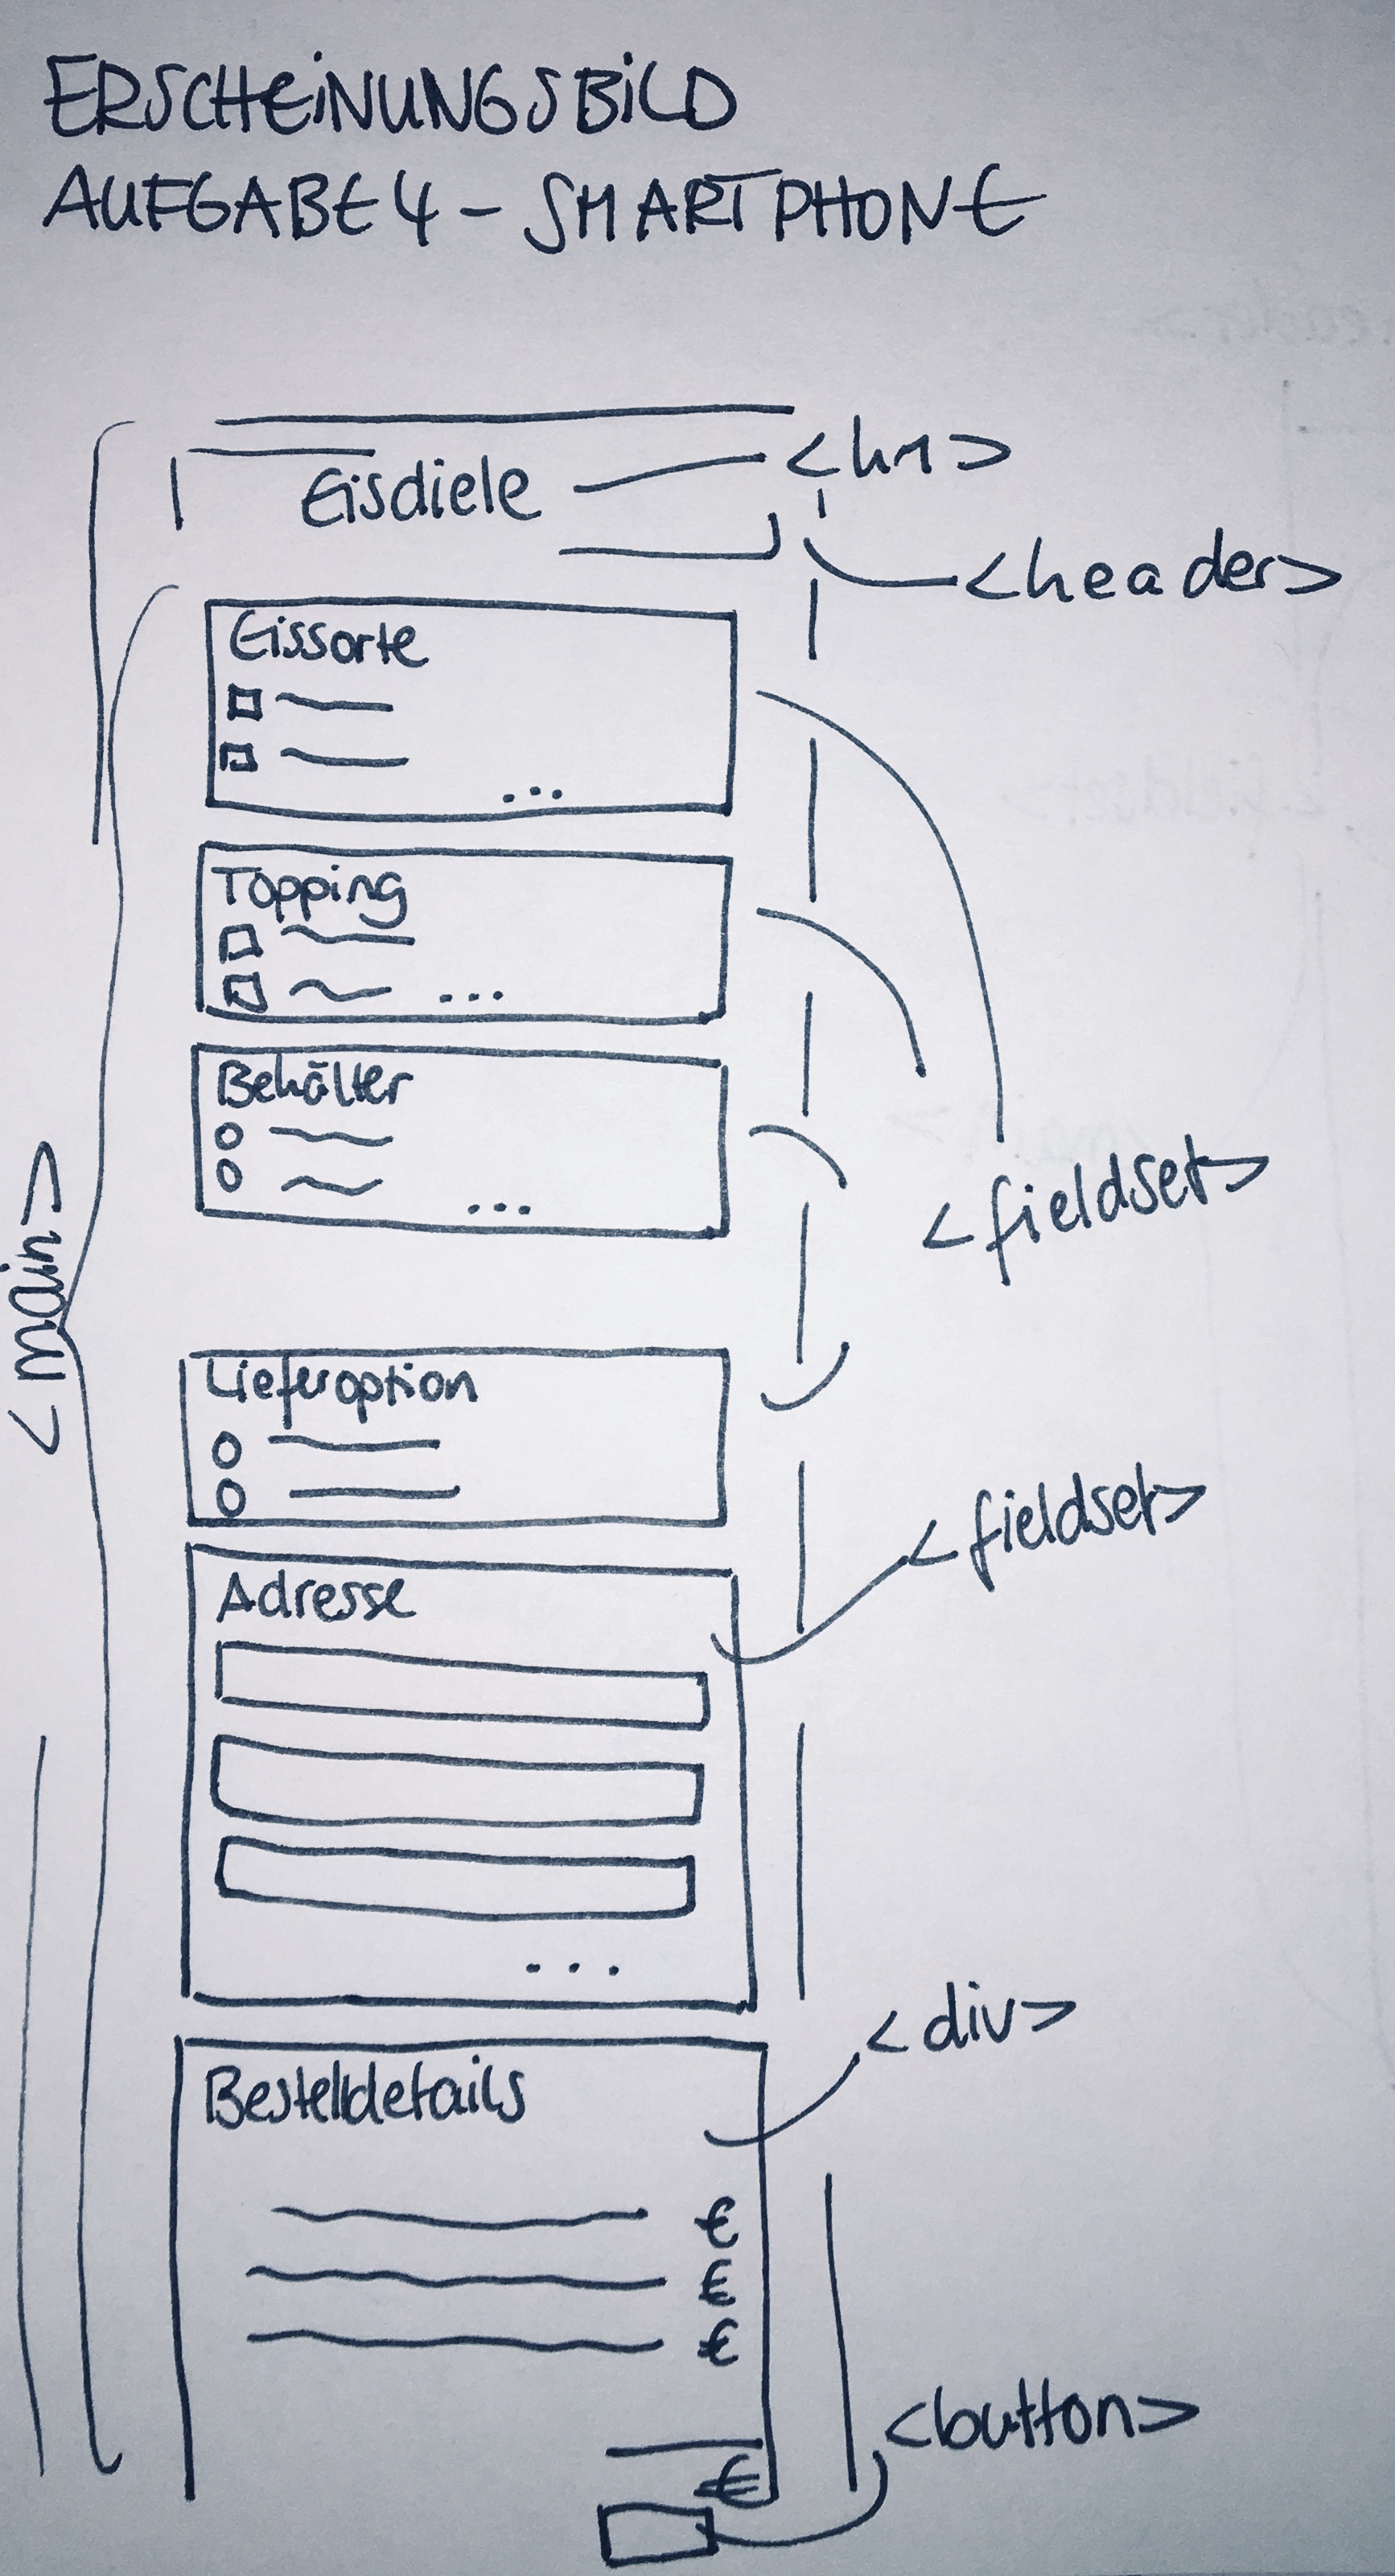 ERSCHEINUNGSBILD
AUFGABE 4 - SMARTPHONE
Eisdiele
<h1>
<header>
Eissorte
...
Topping
...
Behälter
...
<fieldset>
<main>
Lieferoption
<fieldset>
Adresse
...
<div>
Bestelldetails
€
€
€
<button>
€